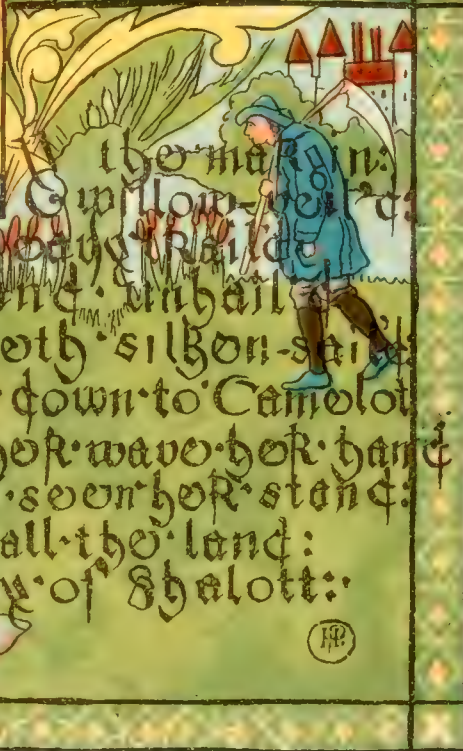 the margin:
willow-veil'd:
and·unhail'd
eth·silken-sail'd
down·to·Camelot
her·wave·her·hand
·seen·her·stand:
all·the·land:
y·of Shalott:·
HP